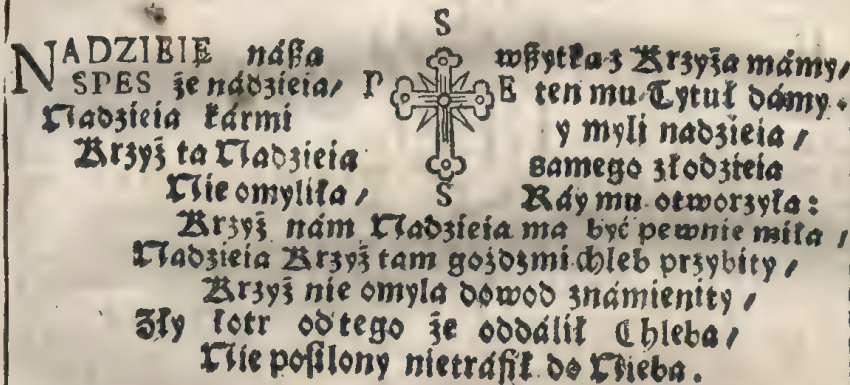 S
NADZIEIĘ náßa wßytká z Krzyżá mámy,
SPES że nádzieia, P E ten mu Tytuł dámy.
Nadzieia kármi y myli nadzieia,
Krzyż ta Nadzieia samego złodzieia
Nie omyliła, S Ráy mu otworzyła:
Krzyż nám Nadzieia ma być pewnie miła,
Nadzieia Krzyż tam goźdźmi chleb przybity,
Krzyż nie omyla dowod známienity,
Zły łotr od tego że oddálił Chleba,
Nie posilony nietráfił do Nieba.